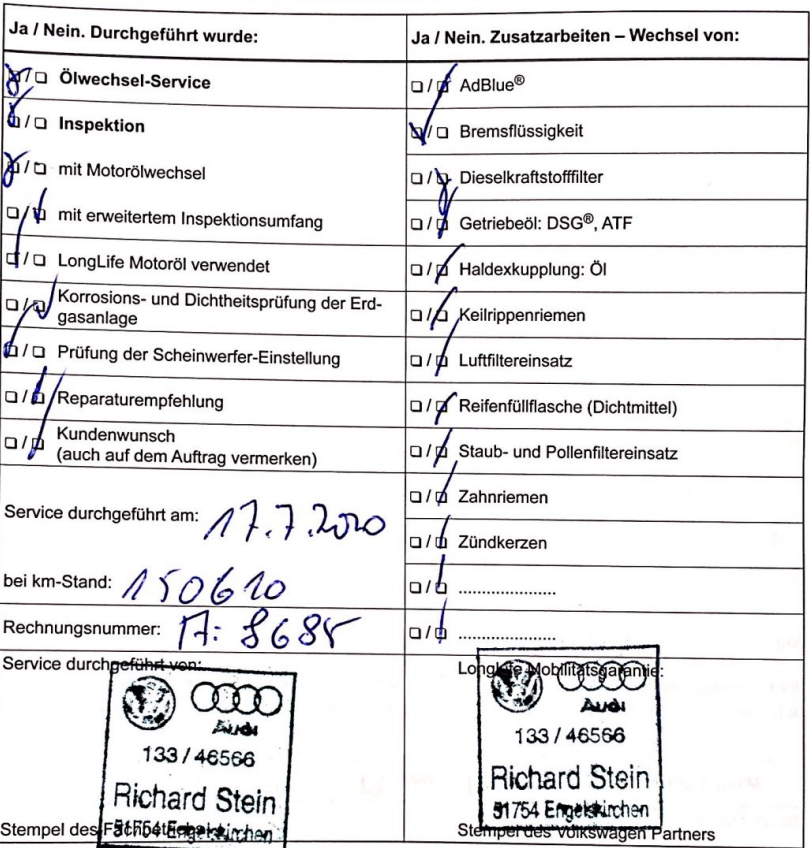 Ja / Nein. Durchgeführt wurde:
☒/☐ Ölwechsel-Service
☒/☐ Inspektion
☒/☐ mit Motorölwechsel
☐/☒ mit erweitertem Inspektionsumfang
☒/☐ LongLife Motoröl verwendet
☐/☒ Korrosions- und Dichtheitsprüfung der Erd-
gasanlage
☒/☐ Prüfung der Scheinwerfer-Einstellung
☐/☒ Reparaturempfehlung
☐/☒ Kundenwunsch
(auch auf dem Auftrag vermerken)
Service durchgeführt am: 17.7.2020
bei km-Stand: 150610
Rechnungsnummer: A: 8685
Service durchgeführt von:
Audi
133 / 46566
Richard Stein
51754 Engelskirchen
Stempel des Fachbetriebs
Ja / Nein. Zusatzarbeiten – Wechsel von:
☐/☒ AdBlue®
☒/☐ Bremsflüssigkeit
☐/☒ Dieselkraftstofffilter
☐/☒ Getriebeöl: DSG®, ATF
☐/☒ Haldexkupplung: Öl
☐/☒ Keilrippenriemen
☐/☒ Luftfiltereinsatz
☐/☒ Reifenfüllflasche (Dichtmittel)
☐/☒ Staub- und Pollenfiltereinsatz
☐/☒ Zahnriemen
☐/☒ Zündkerzen
☐/☒ .....................
☐/☒ .....................
LongLife Mobilitätsgarantie:
Audi
133 / 46566
Richard Stein
51754 Engelskirchen
Stempel des Volkswagen Partners